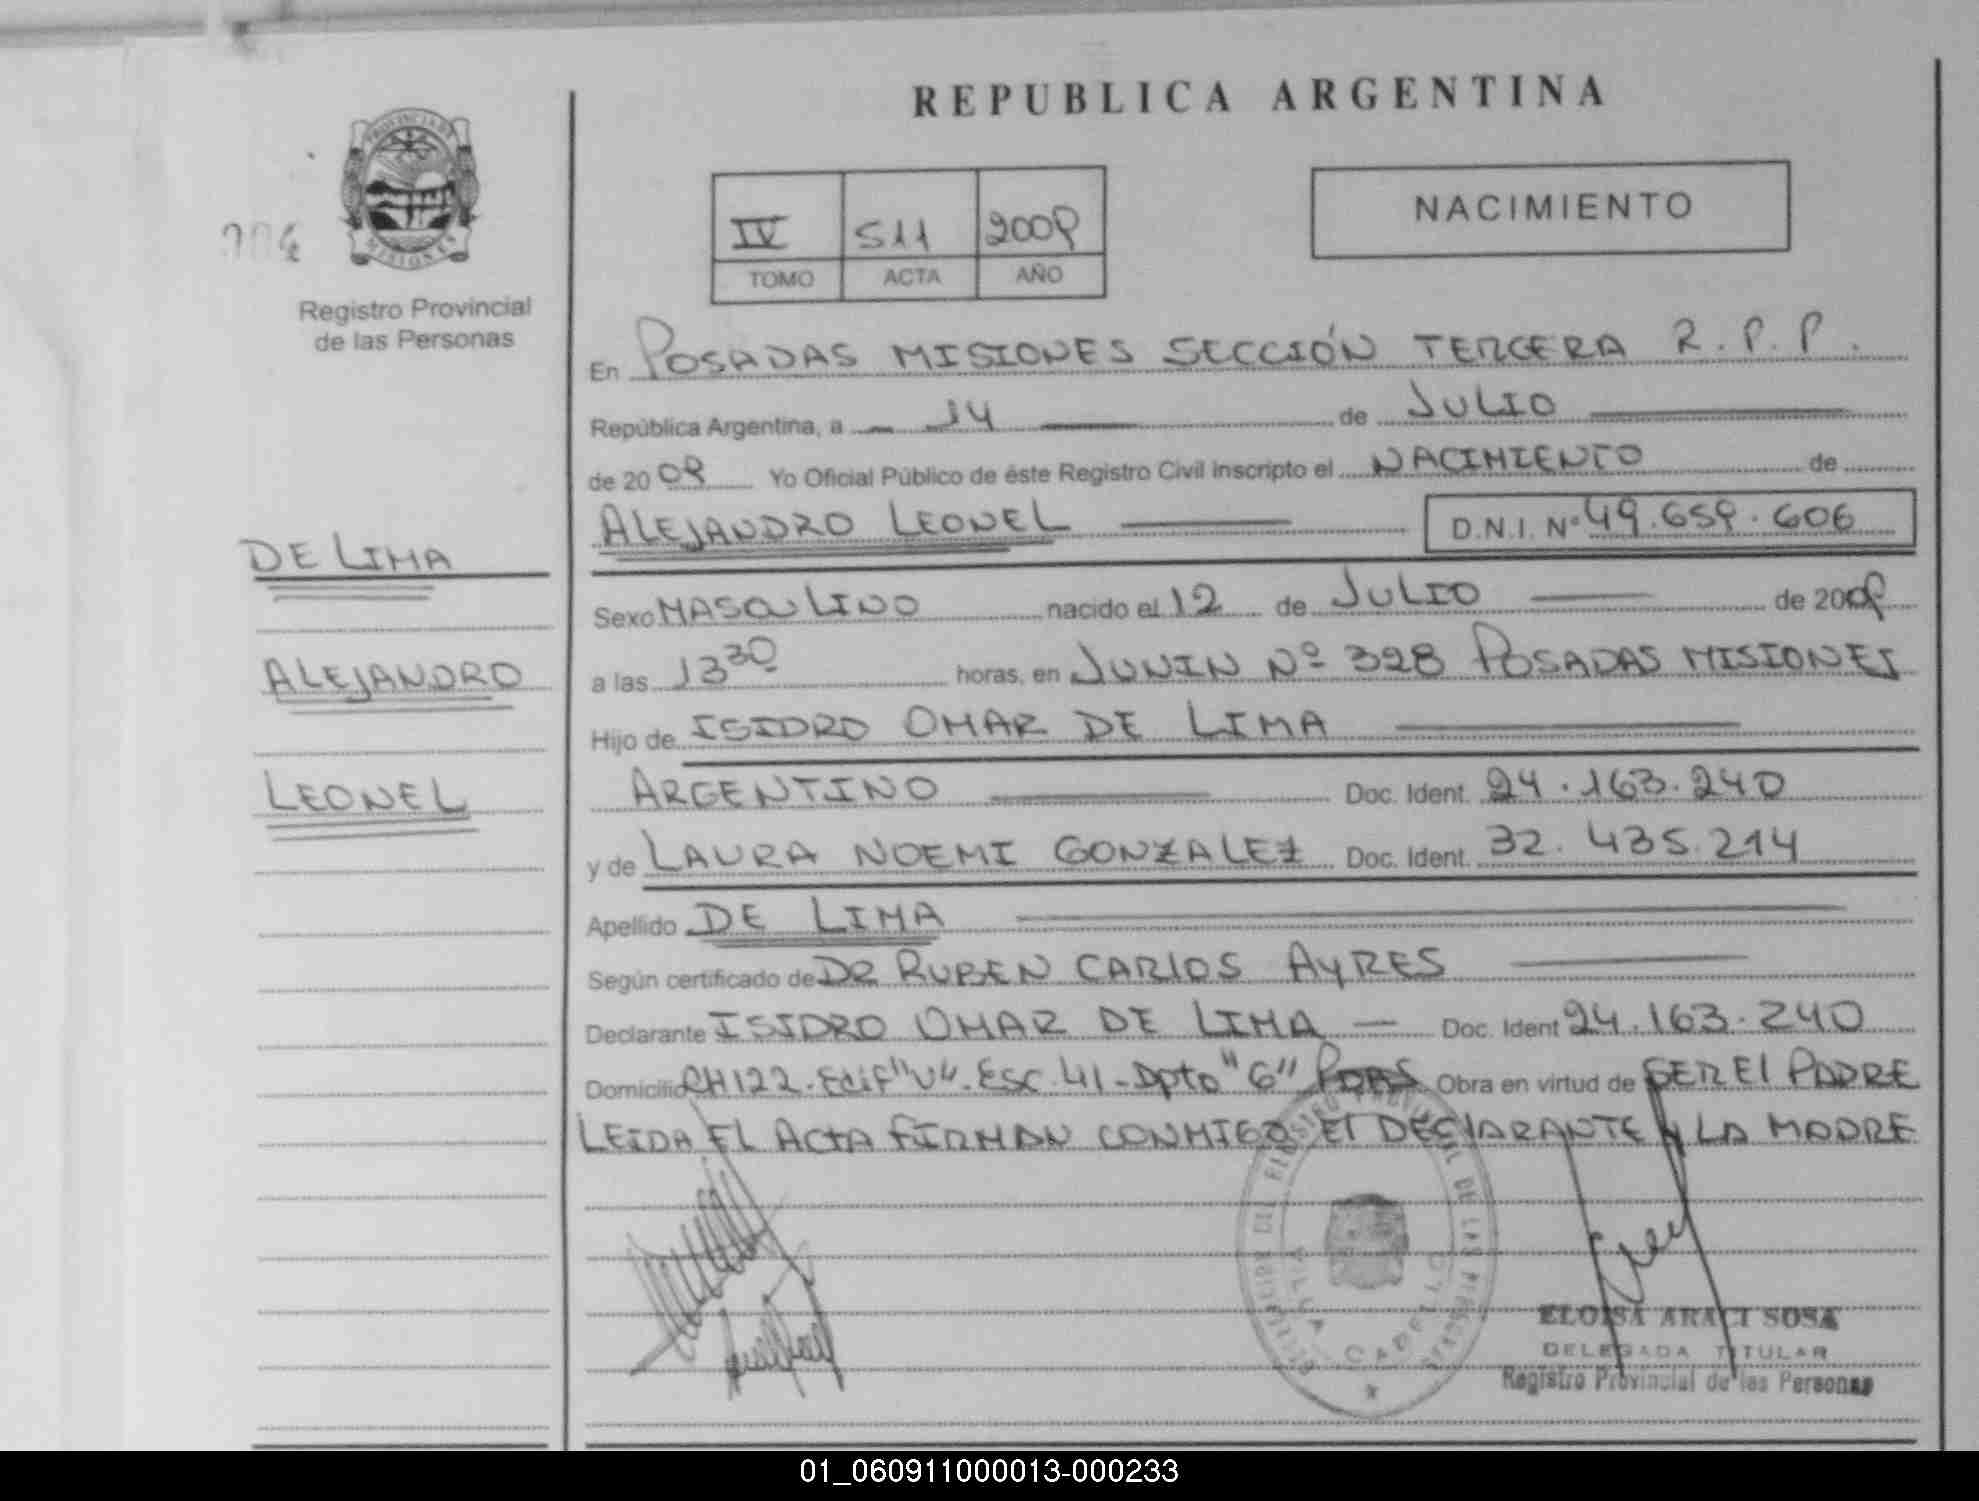 REPUBLICA ARGENTINA
PROVINCIA DE
MISIONES
Registro Provincial
de las Personas
IV S11 2009
TOMO ACTA AÑO
NACIMIENTO
En POSADAS MISIONES SECCIÓN TERCERA R.P.P.
República Argentina, a 14 de JULIO
de 2009 Yo Oficial Público de éste Registro Civil inscripto el NACIMIENTO de
ALEJANDRO LEONEL D.N.I. Nº 49.659.606
DE LIMA
ALEJANDRO
LEONEL
Sexo MASCULINO nacido el 12 de JULIO de 2009
a las 13 30 horas, en JUNIN Nº 328 POSADAS MISIONES
Hijo de ISIDRO OMAR DE LIMA
ARGENTINO Doc. Ident. 24.163.240
y de LAURA NOEMI GONZALEZ Doc. Ident. 32.435.214
Apellido DE LIMA
Según certificado de DR RUBEN CARLOS AYRES
Declarante ISIDRO OMAR DE LIMA Doc. Ident 24.163.240
Domicilio CH122. Edif "U". Esc. 41 - Dpto "G" PDAS Obra en virtud de SER El PADRE
LEIDA EL ACTA FIRMAN CONMIGO El DEClARANTE y LA MADRE
DEL REGISTRO PROVINCIAL DE LAS PERSONAS
VILLA CABELLO
ELOISA ARACI SOSA
DELEGADA TITULAR
Registro Provincial de las Personas
01_060911000013-000233